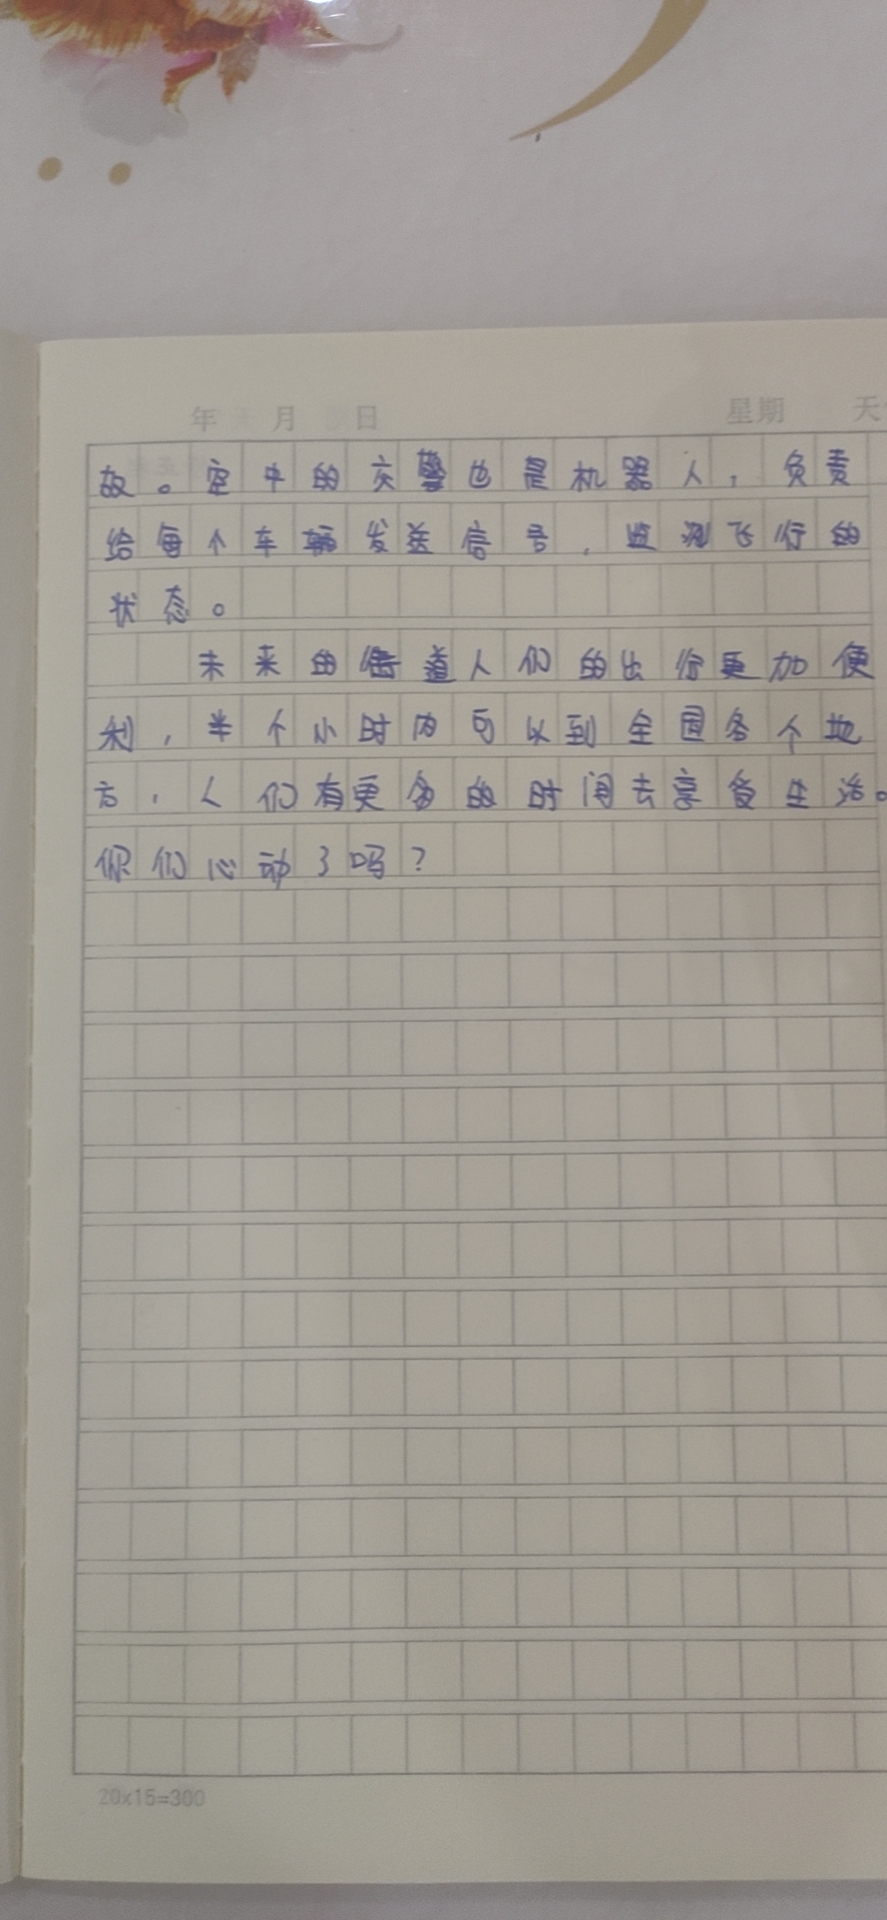 年 月 日 星期 天
故。空中的交警也是机器人，负责
给每个车辆发送信号，监测飞行的
状态。
未来的街道人们的出行更加便
利，半个小时内可以到全国各个地
方，人们有更多的时间去享受生活。
你们心动了吗？
20x15=300